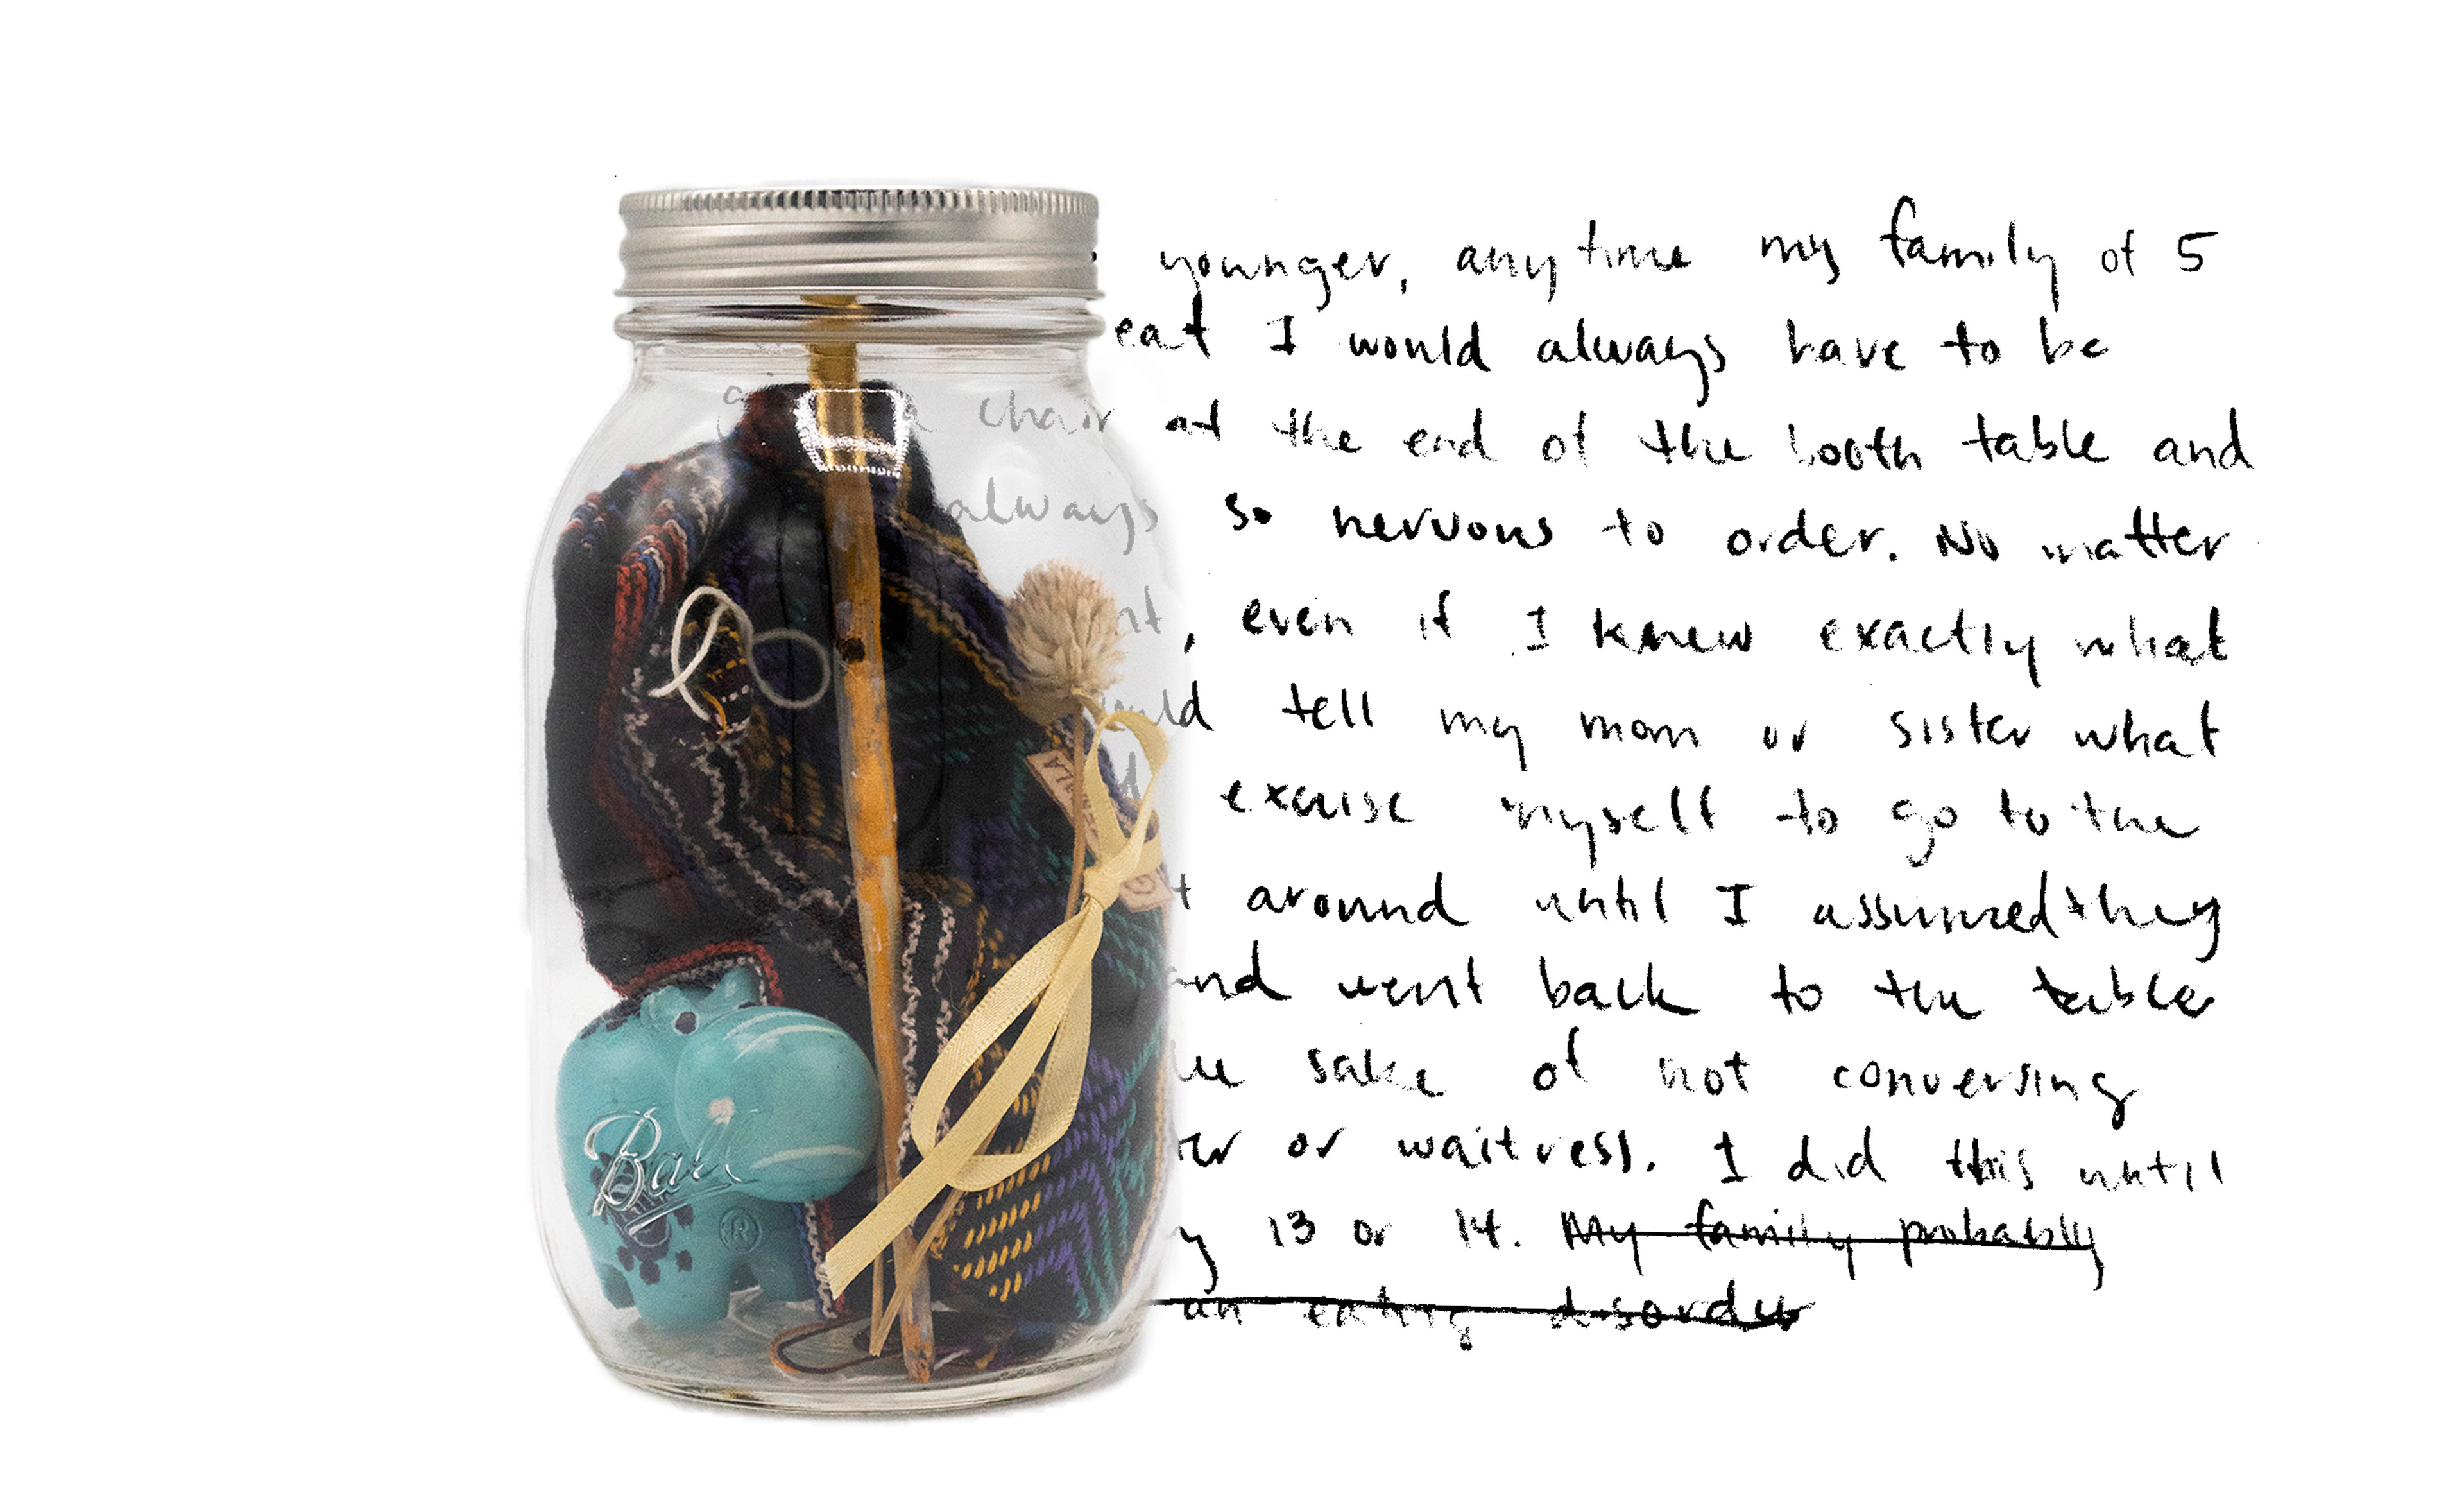 younger, anytime my family of 5
eat I would always have to be
a chair at the end of the booth table and
always so nervous to order. No matter
, even if I knew exactly what
tell my mom or sister what
excuse myself to go to the
around until I assumed they
and went back to the table
sake of not conversing
or waitress. I did this until
13 or 14. My family probably
an eating disorder
Ball
®